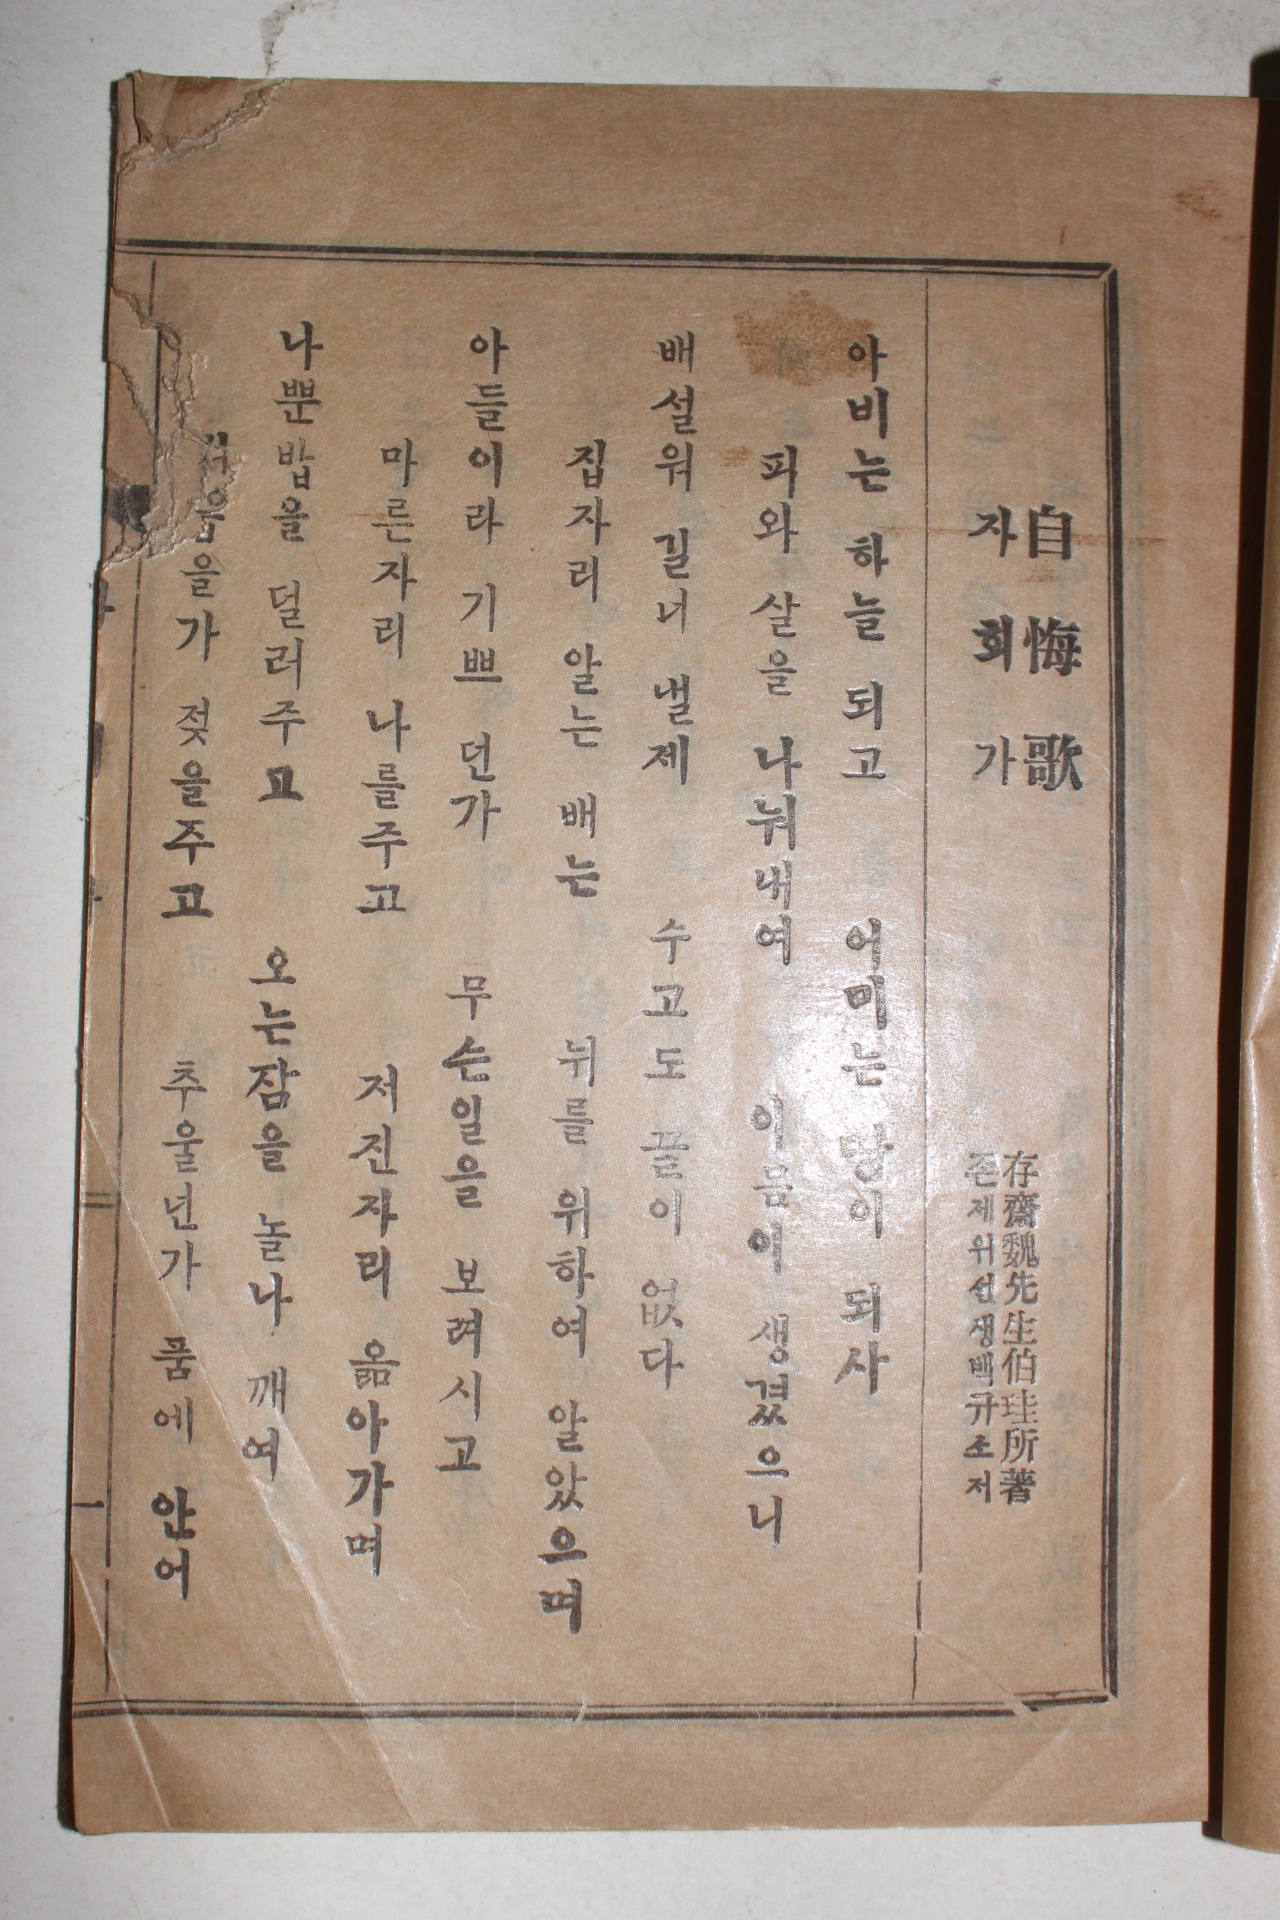 自悔歌
자회가
存齋魏先生伯珪所著
존제위선생백규소저
아비는 하늘 되고 어미는 땅이 되사
피와 살을 나눠내여 이몸이 생겼으니
배설워 길너 낼제 수고도 끝이 없다
집자리 알는 배는 뉘를 위하여 알았으며
아들이라 기쁘던가 무슨일을 보려시고
마른자리 나를주고 저진자리 옮아가며
나뿐밥을 덜러주고 오는잠을 놀나 깨여
을가 젖을주고 추울넌가 품에 안어
一